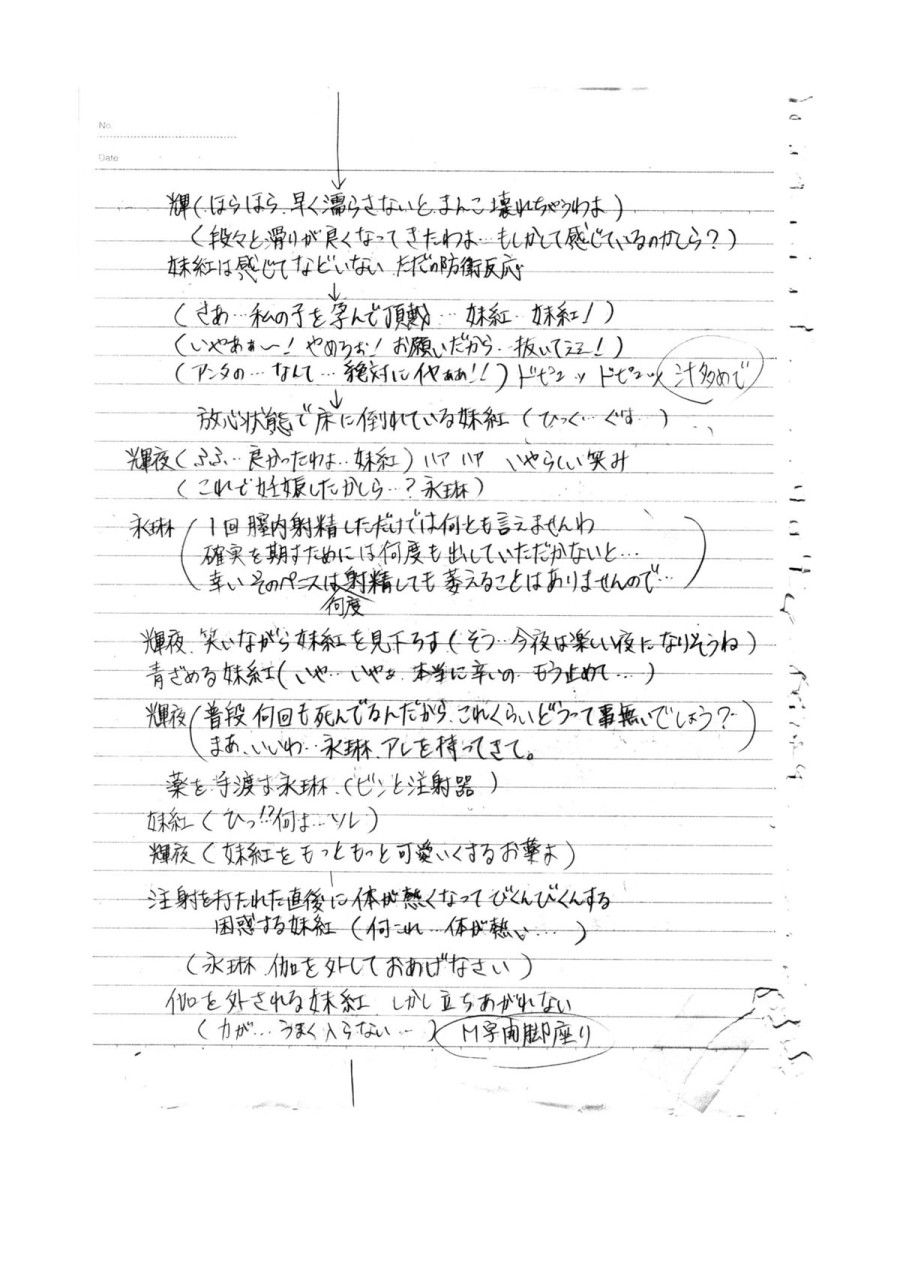 No.
Date
輝(ほらほら、早く濡らさないと、まんこ壊れちゃうわよ)
(段々と滑りが良くなってきたわよ…もしかして感じているのかしら?)
妹紅は感じてなどいない ただの防衛反応
↓
(さあ…私の子を孕んで頂戴… 妹紅…妹紅!)
(いやあぁ〜! やめろぉ! お願いだから…抜いてェェ!)
(アンタの…なんて…絶対にイヤぁぁ!!) ドピュッ ドピュッ 汁多めで
↓
放心状態で床に倒れている妹紅 (ひっく…ぐす…)
輝夜(ふふ…良かったわよ…妹紅) ハァ ハァ いやらしい笑み
(これで妊娠したかしら…?永琳)
永琳(1回膣内射精しただけでは何とも言えませんわ
確実を期すためには何度も出していただかないと…
幸いそのペニスは何度射精しても萎えることはありませんので…)
輝夜、笑いながら妹紅を見下ろす(そう…今夜は楽しい夜になりそうね)
青ざめる妹紅(いや…いやよ 本当に辛いの もう止めて…)
輝夜(普段何回も死んでるんだから、これくらいどうって事無いでしょう?
まあ、いいわ…永琳、アレを持ってきて。)
薬を手渡す永琳 (ビンと注射器)
妹紅(ひっ!?何よ…ソレ)
輝夜(妹紅をもっともっと可愛いくするお薬よ)
注射を打たれた直後に体が熱くなってびくんびくんする
困惑する妹紅(何これ…体が熱い…)
(永琳、伽を外しておあげなさい)
伽を外される妹紅 しかし立ちあがれない
(力が…うまく入らない…) M字開脚座り